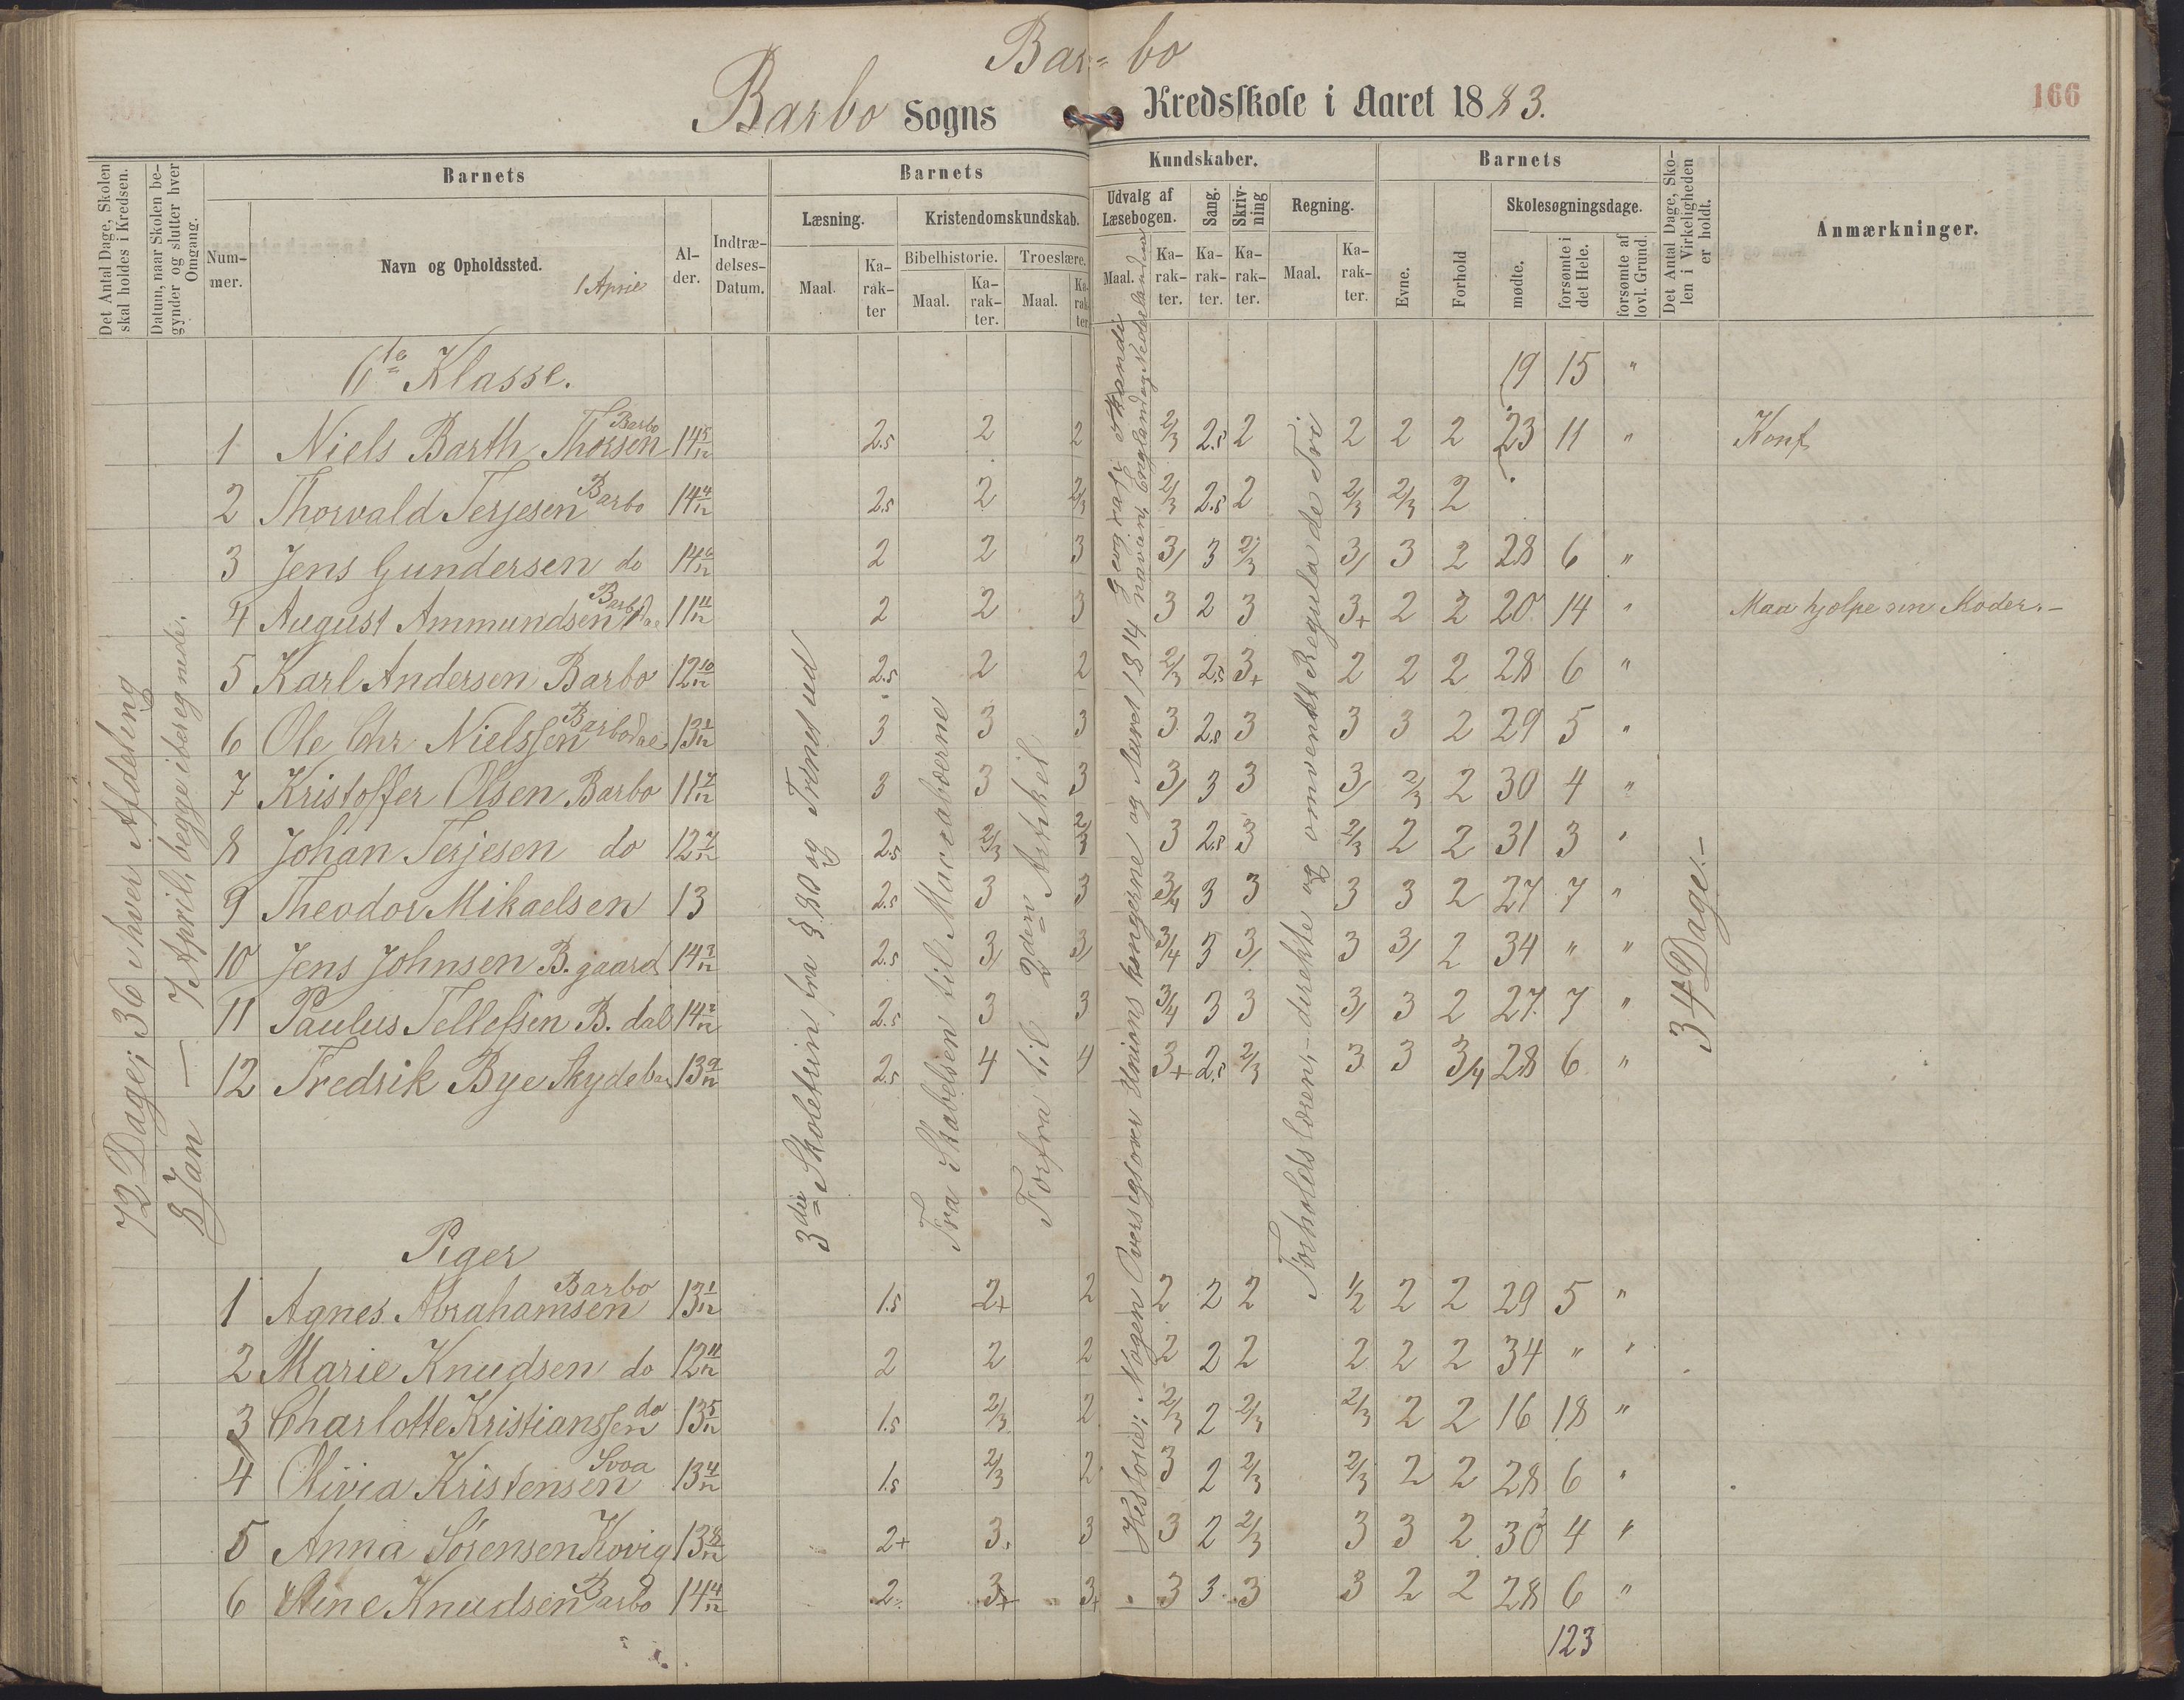 Bar= bo
Barbo Sogns Kredsskole i Aaret 1883.
166
Det Antal Dage, Skolen skal holdes i Kredsen.
Datum, naar Skolen begynder og slutter hver Omgang.
Barnets
Nummer.
Navn og Opholdssted.
1 April
Alder.
Indtrædelses-Datum.
Barnets
Læsning.
Maal.
Karakter
Kristendomskundskab.
Bibelhistorie.
Maal.
Karakter.
Troeslære.
Maal.
Karakter.
Kundskaber.
Udvalg af Læsebogen.
Maal.
Karakter.
Sang.
Karakter.
Skrivning
Karakter.
Regning.
Maal.
Karakter.
Barnets
Evne.
Forhold
Skolesøgningsdage.
mødte.
forsømte i det Hele.
forsømte af lovl. Grund.
Det Antal Dage, Skolen i Virkeligheden er holdt.
Anmærkninger.
72 Dage; 36 i hver Afdeling
8 Jan — 7 April, begge iberegnede.
3die Skoletrin, fra § 80 og Trinet ud
Fra Skabelsen til Maccabæerne
Forfra til 2den Artikel
Historie: Nogen Oversigt over Unionskongerne og Aaret 1814 Geografi Skandinavien, England og Nederlandene
Forholdslæren,- direkte og omvendt Regula de Tri
34 Dage.-
6te Klasse. 19 15 "
1 Niels Barth Thorsen Barbo 14 5/12 2.5 2 2 2/3 2.5 2 2 2 2 23 11 " Konf
2 Thorvald Terjesen Barbo 14 4/12 2.5 2 2/3 2/3 2.5 2 2/3 2/3 2
3 Jens Gundersen do 14 6/12 2 2 3 3/ 3 2/3 3/ 3 2 28 6 "
4 August Ammundsen Barbo 11 11/12 2 2 3 3 2 3 3+ 2 2 20 14 " Maa hjælpe sin Moder.-
5 Karl Andersen Barbo 12 10/12 2.5 2 2 2/3 2.5 3+ 2 2 2 28 6 "
6 Ole Chr. Nielssen Barbodal 13 1/12 3 3 3 3 2.5 3 3 3 2 29 5 "
7 Kristoffer Olsen Barbo 11 7/12 3 3 3 3/ 3 3 3/ 2/3 2 30 4 "
8 Johan Terjesen do 12 7/12 2.5 2/3 2/3 3 2.5 3 2/3 2 2 31 3 "
9 Theodor Mikaelsen 13 2.5 3 3 3/4 3 3 3 3 2 27 7 "
10 Jens Johnsen B. gaard 14 3/12 2.5 3/ 3/ 3/4 3 3/ 3 3/ 2 34 " "
11 Paulus Tellefsen B. dal 14 2/12 2.5 3 3 3/4 3 3 3/ 3 2 27 7 "
12 Fredrik Bye Skydeba 13 9/12 2.5 4 4 3+ 2.5 2/3 3 3 3/4 28 6 "
Piger
1 Agnes Abrahamsen Barbo 13 1/12 1.5 2+ 2 2 2 2 1/2 2 2 29 5 "
2 Marie Knudsen do 12 11/12 2 2 2 2 2 2 2 2 2 34 " "
3 Charlotte Kristianssen do 13 5/12 1.5 2/3 2 2/3 2 2/3 2/3 2 2 16 18 "
4 Olivia Kristensen Svoa 13 4/12 1.5 2/3 2 3 2 2/3 2/3 2 2 28 6 "
5 Anna Sørensen Kovig 13 8/12 2+ 3 3 3 2 2/3 3 3 2 30 4 "
6 Stine Knudsen Barbo 14 4/12 2 3+ 3+ 3 3 3 3 2 2 28 6 "
123